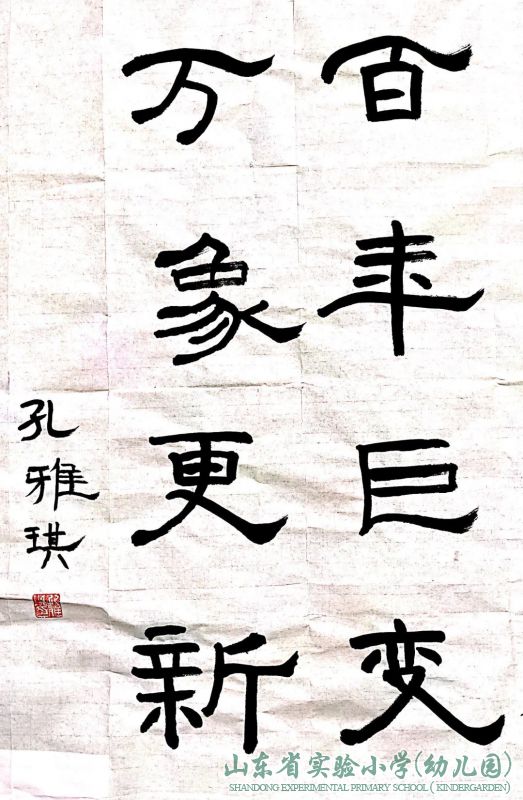 百年巨变
万象更新
孔雅琪
山东省实验小学(幼儿园)
SHANDONG EXPERIMENTAL PRIMARY SCHOOL ( KINDERGARDEN)